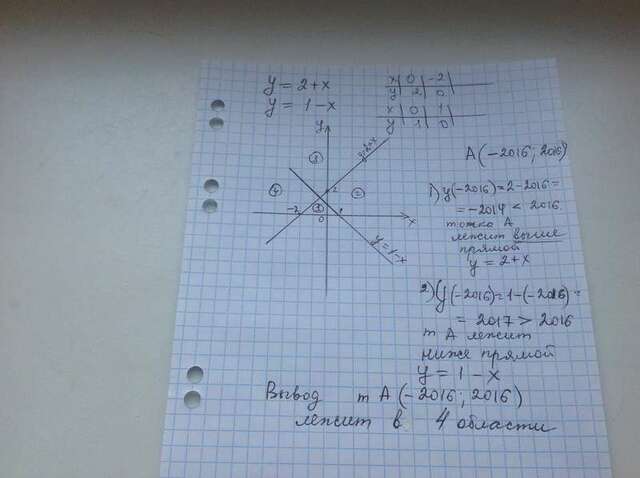 y = 2+x
y = 1-x
x | 0 | -2 |
y | 2 | 0 |
x | 0 | 1 |
y | 1 | 0 |
A(-2016; 2016)
y
③
y=2+x
④
2
②
-2
①
1
0
x
y=1-x
1) y(-2016)=2-2016=
= -2014 < 2016
точка A
лежит выше
прямой
y = 2+x
2) y(-2016)=1-(-2016)=
= 2017 > 2016
т A лежит
ниже прямой
y = 1-x
Вывод т A(-2016; 2016)
лежит в 4 области